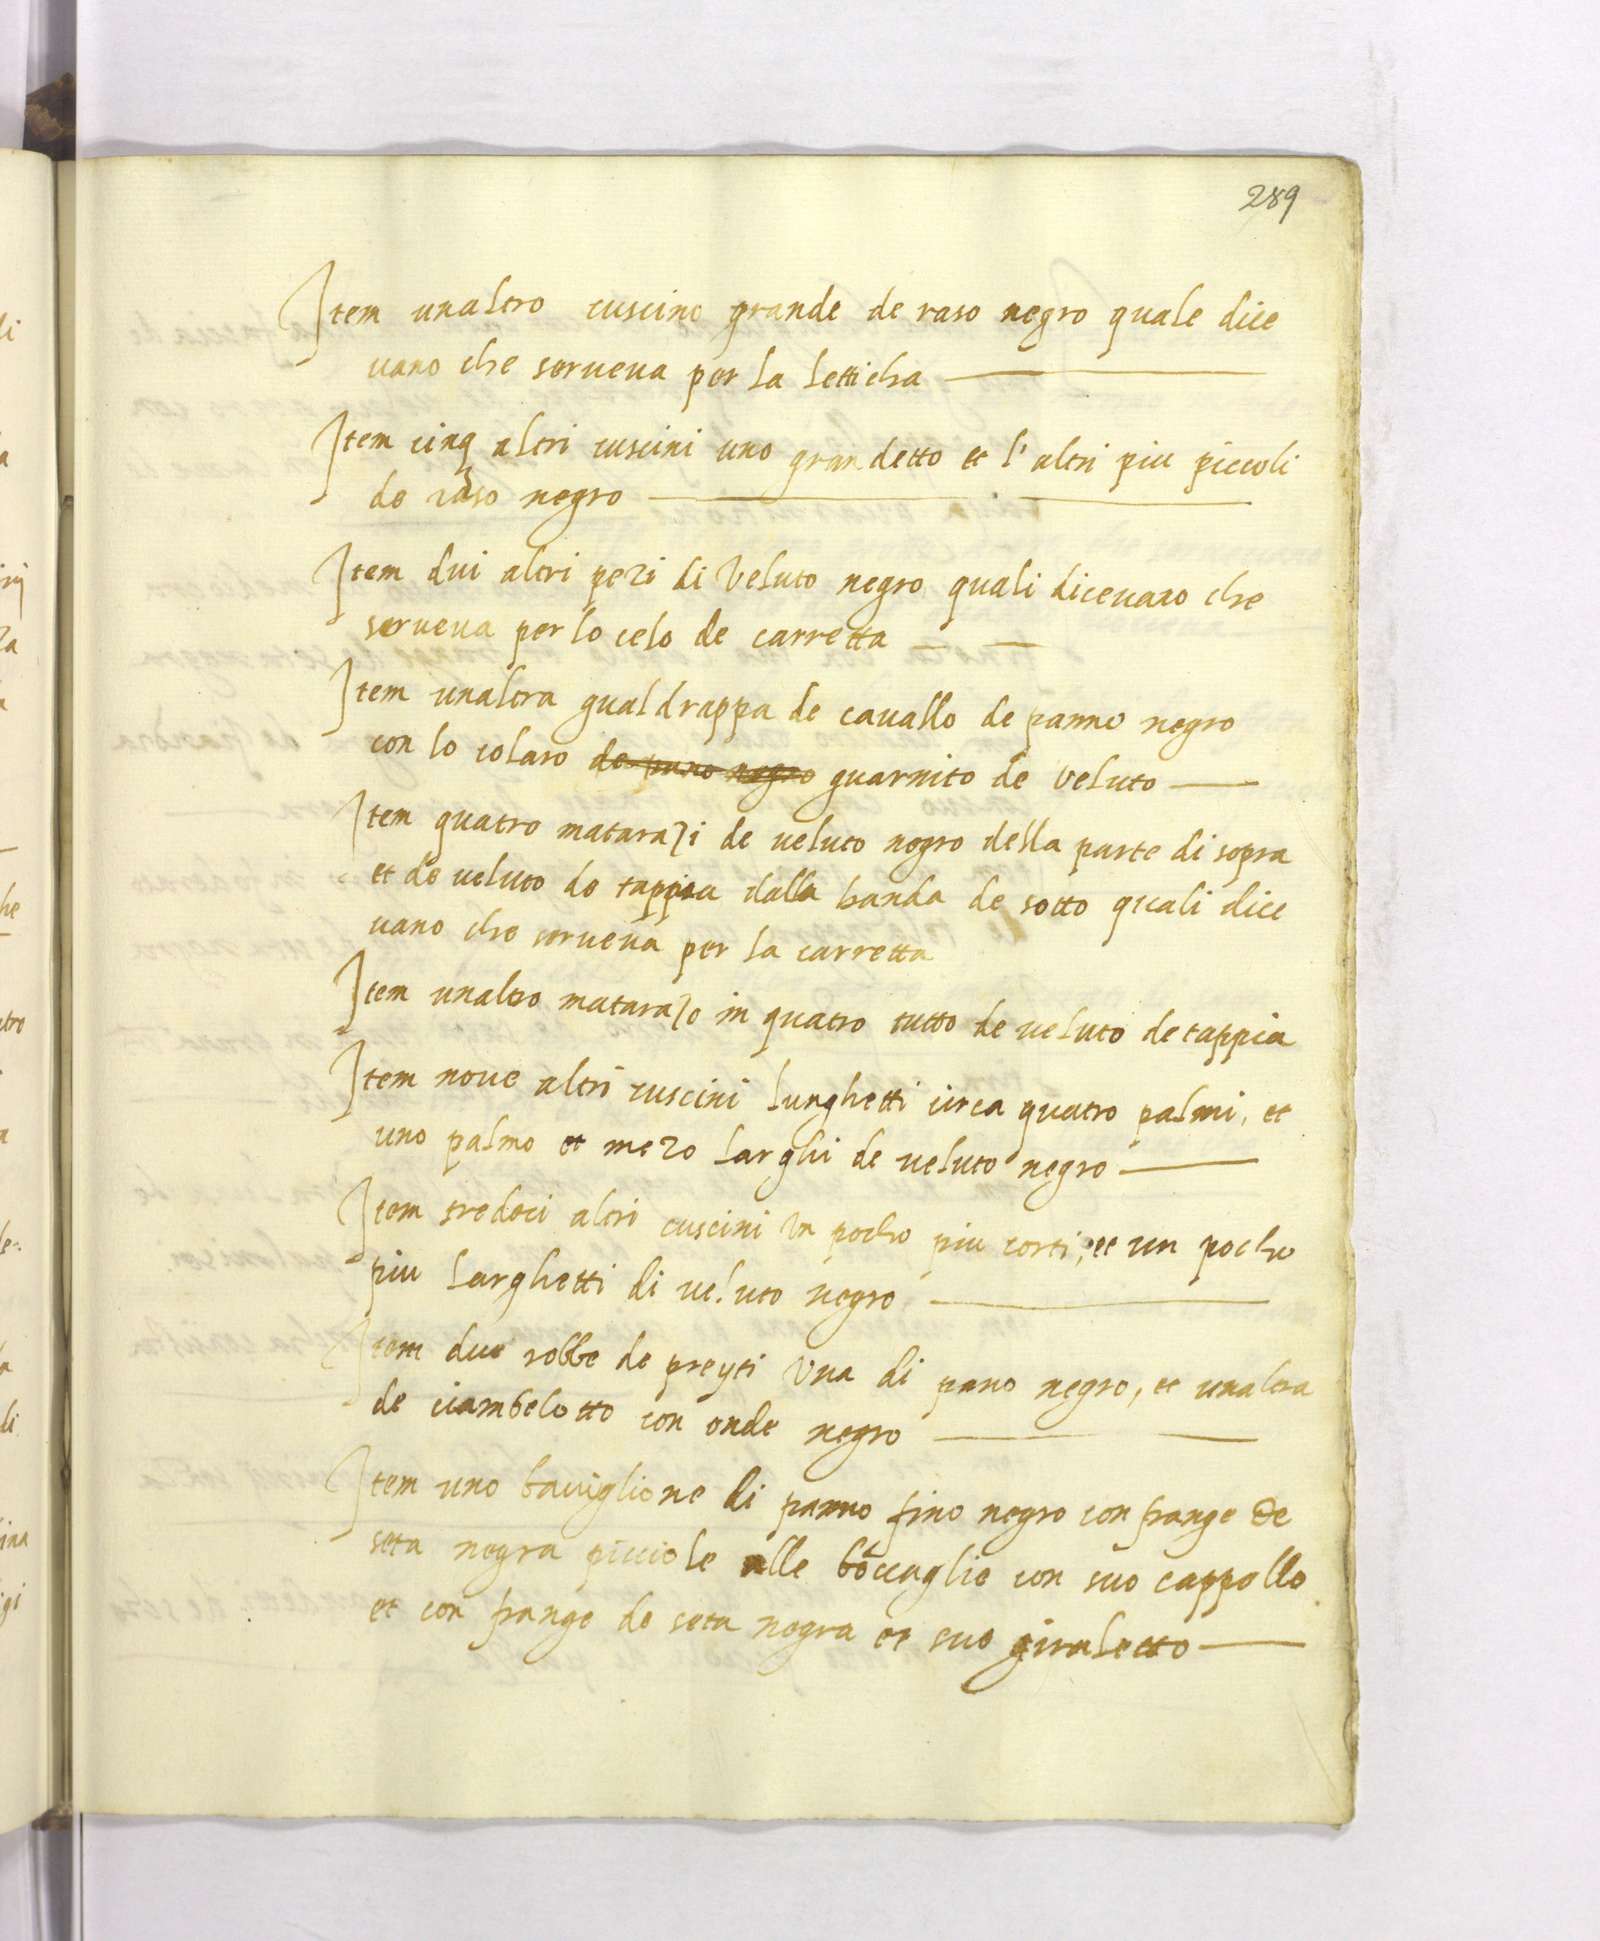 289
Item unaltro cuscino grande de raso negro quale dice
vano che serveva per la letticha
Item cinq altri cuscini uno grandetto et l'altri piu piccoli
de raso negro
Item dui altri pezi di veluto negro quali dicevano che
serveva per lo celo de carretta
Item unaltra gualdrappa de cavallo de panno negro
con lo colaro de pano negro guarnito de veluto
Item quatro matarazi de veluto negro della parte di sopra
et de veluto de tappia dalla banda de sotto quali dice
vano che serveva per la carretta
Item unaltro matarazo in quatro tutto de veluto de tappia
Item nove altri cuscini lunghetti circa quatro palmi, et
uno palmo et mezo larghi de veluto negro
Item tredeci altri cuscini un pocho piu corti, et un pocho
piu larghetti di veluto negro
Item due robbe de preyti una di pano negro, et unaltra
de ciambelotto con onde negro
Item uno baviglione di panno fino negro con frange de
seta negra picciole alle boccaglie con suo cappello
et con frange de seta negra et suo giraletto